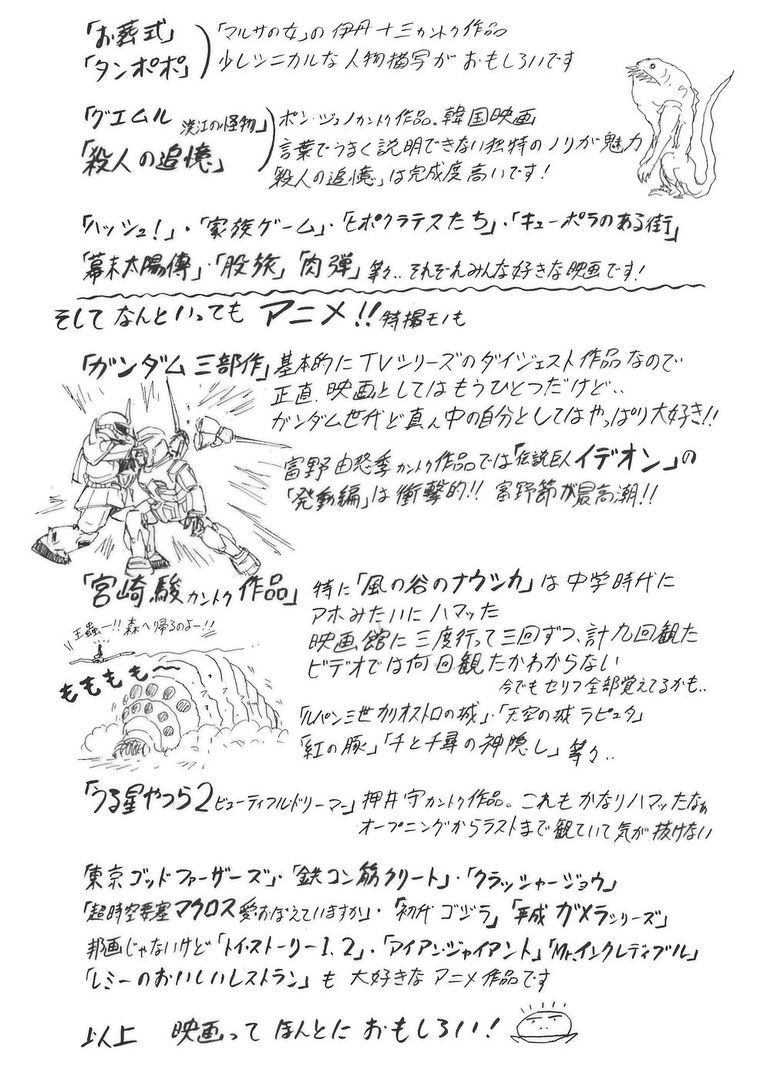 「お葬式」
「タンポポ」
「マルサの女」の伊丹十三カントク作品
少しシニカルな人物描写がおもしろいです
「グエムル 漢江の怪物」
「殺人の追憶」
ポン・ジュノカントク作品。韓国映画
言葉でうまく説明できない独特のノリが魅力
殺人の追憶」は完成度高いです!
「ハッシュ!」・「家族ゲーム」・「ヒポクラテスたち」・「キューポラのある街」
「幕末太陽傳」・「股旅」「肉弾」等々‥それぞれみんな好きな映画です!
そしてなんといっても アニメ!! 特撮モノも
「ガンダム三部作」基本的にTVシリーズのダイジェスト作品なので
正直、映画としてはもうひとつだけど‥
ガンダム世代ど真ん中の自分としてはやっぱり大好き!!
富野由悠季カントク作品では「伝説巨人イデオン」の
「発動編」は衝撃的!! 富野節が最高潮!!
「宮崎駿カントク作品」特に「風の谷のナウシカ」は中学時代に
アホみたいにハマッた
映画館に三度行って三回ずつ、計九回観た
ビデオでは何回観たかわからない
今でもセリフ全部覚えてるかも‥
王蟲ー!!森へ帰るのよー!!
もももも〜
「ルパン三世カリオストロの城」・「天空の城ラピュタ」
「紅の豚」「千と千尋の神隠し」等々‥
「うる星やつら2ビューティフルドリーマー」押井守カントク作品。これもかなりハマッたなぁ
オープニングからラストまで観ていて気が抜けない
「東京ゴッドファーザーズ」・「鉄コン筋クリート」・「クラッシャージョウ」
「超時空要塞マクロス愛・おぼえていますか」・「初代ゴジラ」「平成ガメラシリーズ」
邦画じゃないけど「トイ・ストーリー1、2」・「アイアン・ジャイアント」「Mr.インクレディブル」
「レミーのおいしいレストラン」も大好きなアニメ作品です
以上 映画ってほんとにおもしろい!